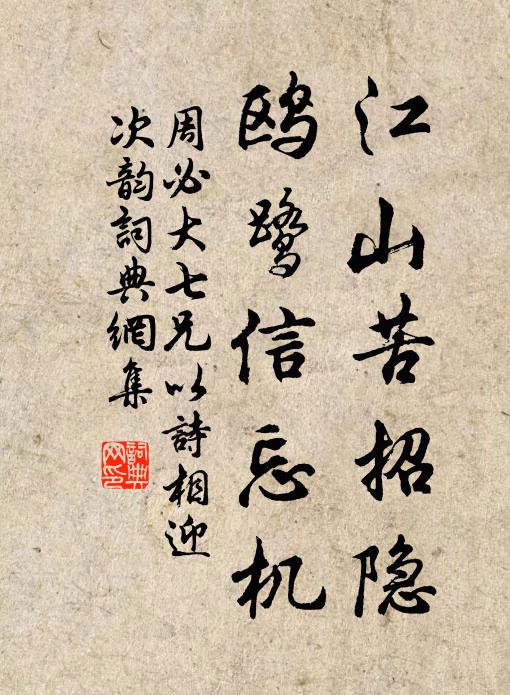 江山苦招隐
鸥鹭信忘机
周必大七兄以詩相迎
次韵詞典網集
詞典
网印